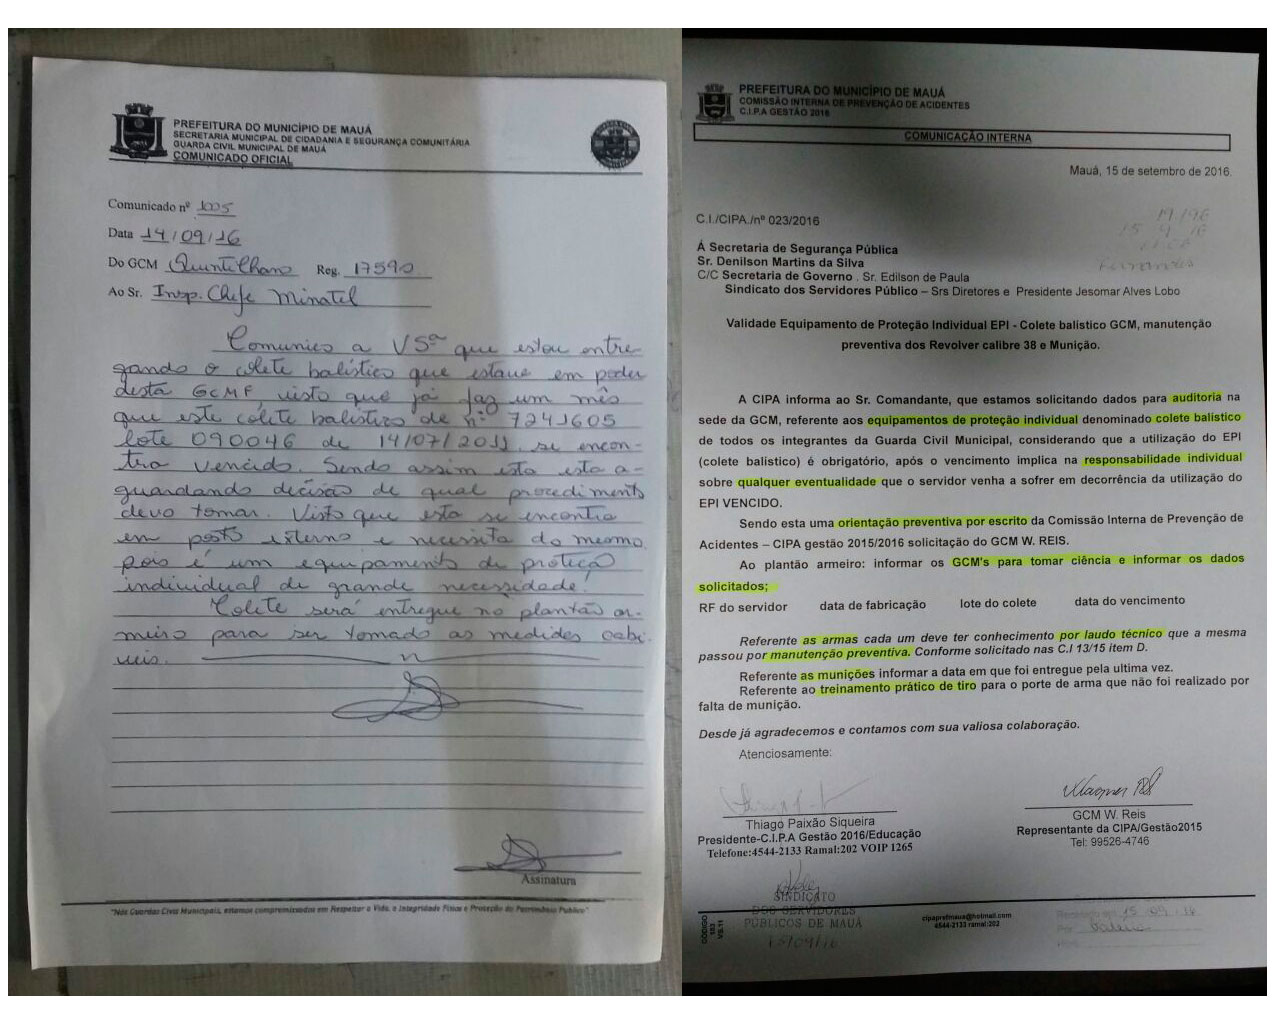 PREFEITURA DO MUNICÍPIO DE MAUÁ
SECRETARIA MUNICIPAL DE CIDADANIA E SEGURANÇA COMUNITÁRIA
GUARDA CIVIL MUNICIPAL DE MAUÁ
COMUNICADO OFICIAL
Comunicado nº 1005
Data 14/09/16
Do GCM Quintelhano Reg. 17590
Ao Sr. Insp. Chefe Minatel
Comunico a VSª que estou entre
gando o colete balístico que estava em poder
desta GCMF, visto que já faz um mês
que este colete balístico de nº 7241605
lote 090046 de 14/07/2011, se encon-
tra vencido. Sendo assim esta esta a-
guardando decisão de qual procedimento
devo tomar. Visto que esta se encontra
em posto externo e necessita do mesmo
pois é um equipamento de proteção
individual de grande necessidade!
Colete será entregue no plantão ar-
meiro para ser tomado as medidas cabi-
veis.
Assinatura
"Nós Guardas Civis Municipais, estamos compromissados em Respeitar a Vida, a Integridade Física e Proteção do Patrimônio Público"
PREFEITURA DO MUNICÍPIO DE MAUÁ
COMISSÃO INTERNA DE PREVENÇÃO DE ACIDENTES
C.I.P.A GESTÃO 2016
COMUNICAÇÃO INTERNA
Mauá, 15 de setembro de 2016.
C.I./CIPA./nº 023/2016
Á Secretaria de Segurança Pública
Sr. Denilson Martins da Silva
C/C Secretaria de Governo . Sr. Edilson de Paula
Sindicato dos Servidores Público – Srs Diretores e Presidente Jesomar Alves Lobo
Validade Equipamento de Proteção Individual EPI - Colete balístico GCM, manutenção
preventiva dos Revolver calibre 38 e Munição.
A CIPA informa ao Sr. Comandante, que estamos solicitando dados para auditoria na
sede da GCM, referente aos equipamentos de proteção individual denominado colete balistico
de todos os integrantes da Guarda Civil Municipal, considerando que a utilização do EPI
(colete balistico) é obrigatório, após o vencimento implica na responsabilidade individual
sobre qualquer eventualidade que o servidor venha a sofrer em decorrência da utilização do
EPI VENCIDO.
Sendo esta uma orientação preventiva por escrito da Comissão Interna de Prevenção de
Acidentes – CIPA gestão 2015/2016 solicitação do GCM W. REIS.
Ao plantão armeiro: informar os GCM's para tomar ciência e informar os dados
solicitados;
RF do servidor data de fabricação lote do colete data do vencimento
Referente as armas cada um deve ter conhecimento por laudo técnico que a mesma
passou por manutenção preventiva. Conforme solicitado nas C.I 13/15 item D.
Referente as munições informar a data em que foi entregue pela ultima vez.
Referente ao treinamento prático de tiro para o porte de arma que não foi realizado por
falta de munição.
Desde já agradecemos e contamos com sua valiosa colaboração.
Atenciosamente:
Thiago Paixão Siqueira
Presidente-C.I.P.A Gestão 2016/Educação
Telefone:4544-2133 Ramal:202 VOIP 1265
GCM W. Reis
Representante da CIPA/Gestão2015
Tel: 99526-4746
SINDICATO
DOS SERVIDORES
PÚBLICOS DE MAUÁ
15/09/16
cipaprefmaua@hotmail.com
4544-2133 ramal:202
15 09 16